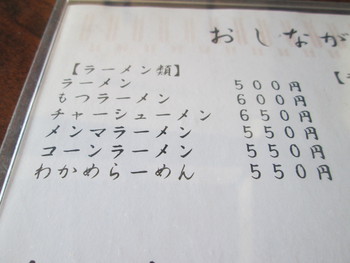 おしなが
【ラーメン類】
ラーメン 500円
もつラーメン 600円
チャーシューメン 650円
メンマラーメン 550円
コーンラーメン 550円
わかめらーめん 550円